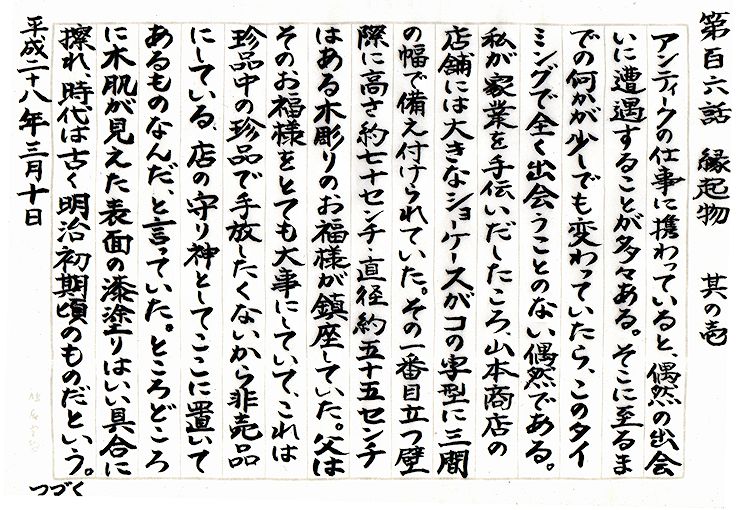 第百六話　縁起物　其の壱
アンティークの仕事に携わっていると、偶然の出会
いに遭遇することが多々ある。そこに至るま
での何かが少しでも変わっていたら、このタイ
ミングで全く出会うことのない偶然である。
私が家業を手伝いだしたころ、山本商店の
店舗には大きなショーケースがコの字型に三間
の幅で備え付けられていた。その一番目立つ壁
際に高さ約七十センチ・直径約五十五センチ
はある木彫りのお福様が鎮座していた。父は
そのお福様をとても大事にしていて、これは
珍品中の珍品で手放したくないから非売品
にしている、店の守り神としてここに置いて
あるものなんだ、と言っていた。ところどころ
に木肌が見えた表面の漆塗りはいい具合に
擦れ、時代は古く明治初期頃のものだという。
つづく
平成二十八年三月十日